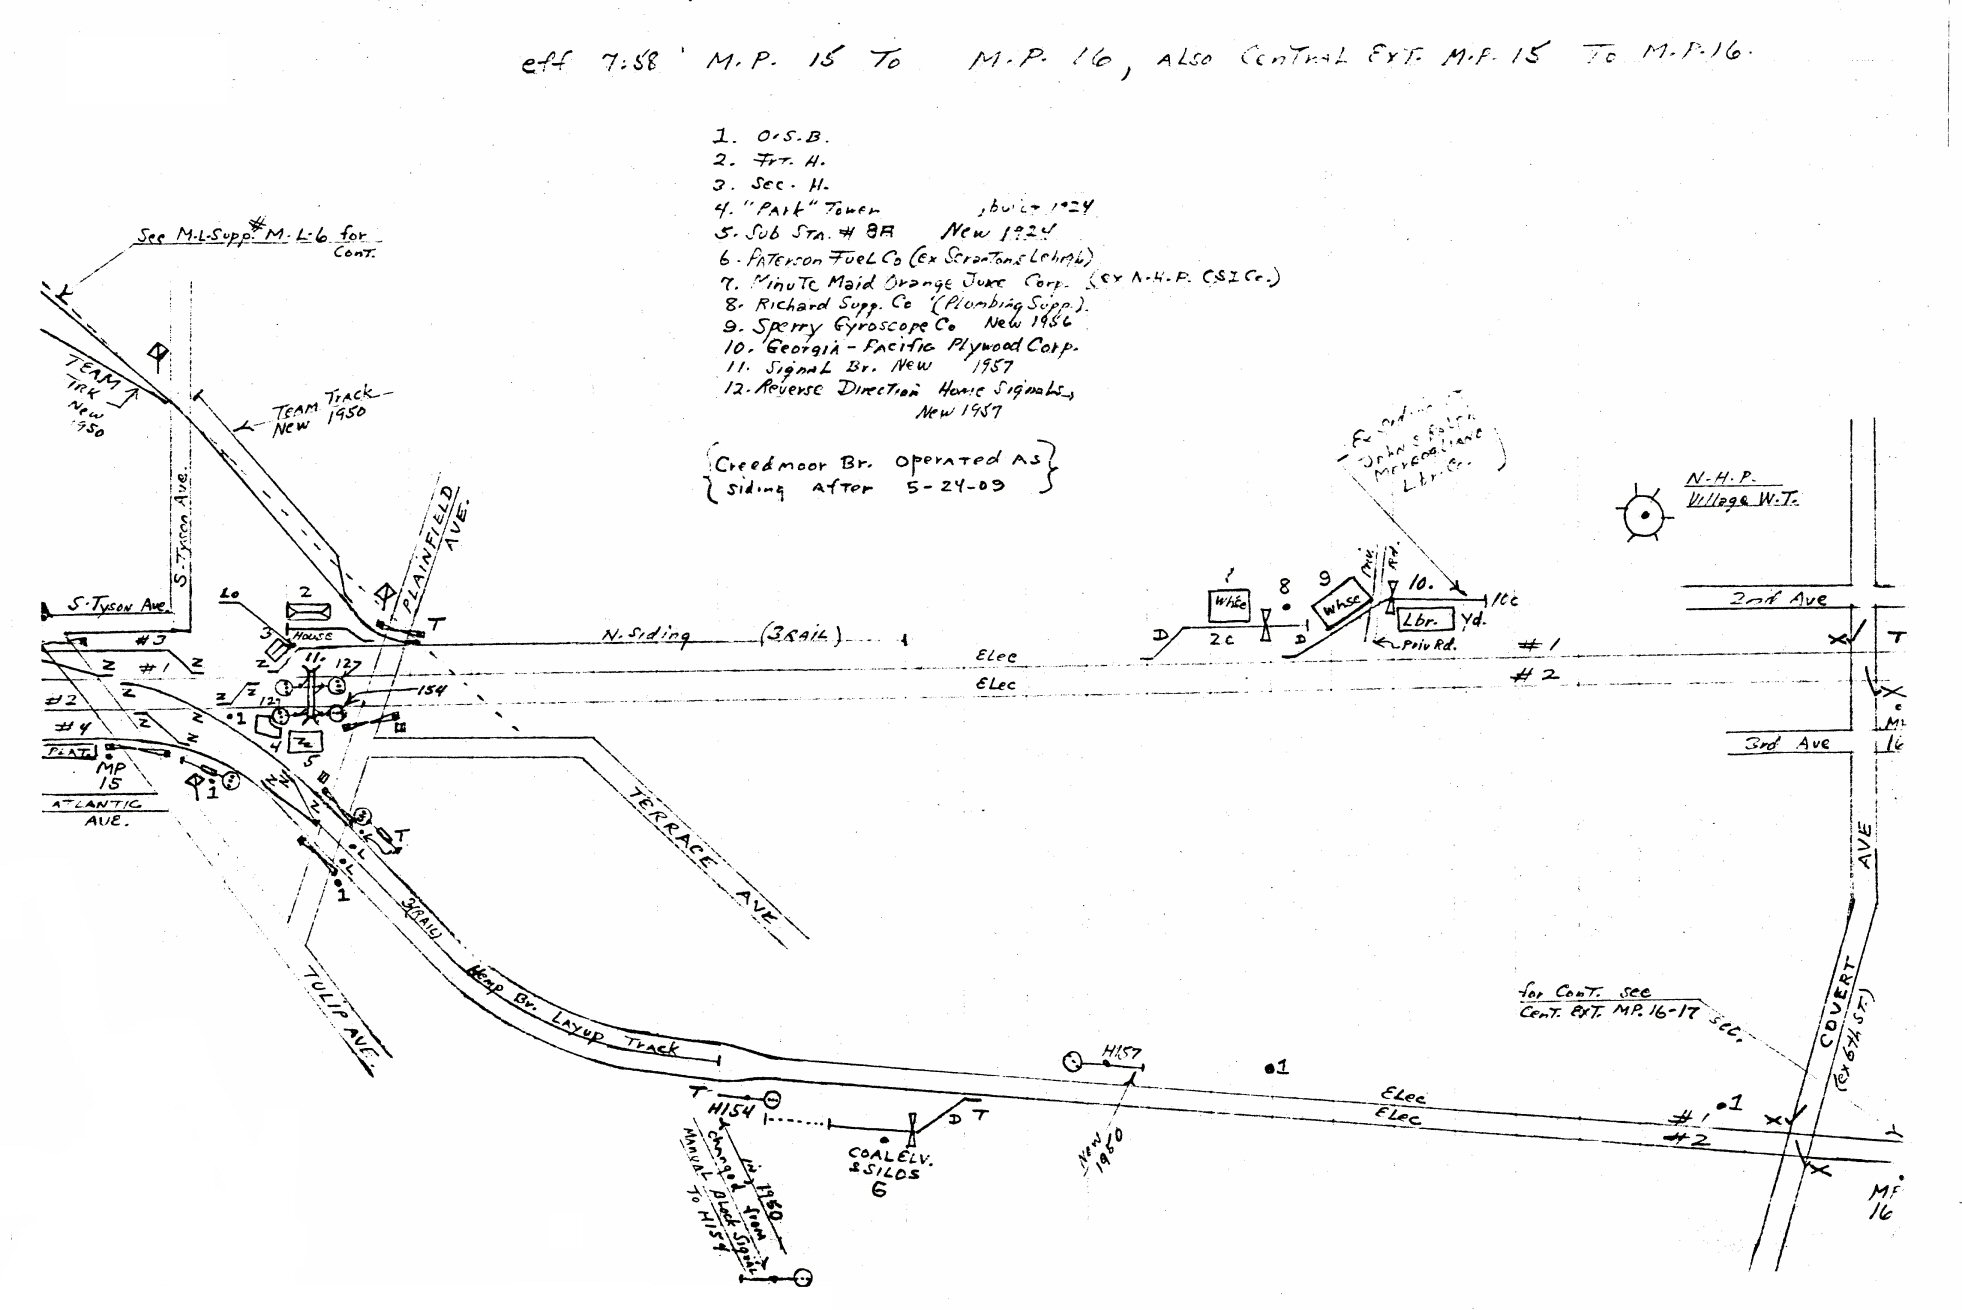 eff 7:58 M.P. 15 To M.P. 16, ALSO CenTrAL ExT. M.P. 15 To M.P. 16.
1. O.S.B.
2. Frt. H.
3. Sec. H.
4. "PArk" Tower , built 1924
5. Sub STA. # 8A New 1924
6. PATerson Fuel Co (Ex Scrantons Lehigh)
7. MinuTe Maid Orange Juice Corp. (ex N.H.P. CSI Co.)
8. Richard Supp. Co (Plumbing Supp.)
9. Sperry Gyroscope Co New 1956
10. Georgia-Pacific Plywood Corp.
11. Signal Br. New 1957
12. Reverse DirecTion Home Signals,
New 1957
{Creedmoor Br. OperATed As}
{Siding AfTer 5-24-09}
See M.L.Supp.# M-L-6 for
ConT.
TEAM
TRK
New
1950
TEAM TrAck
New 1950
S. Tyson Ave.
PLAINFIELD
AVE.
S. Tyson Ave.
Lo
2
3
House
#3
#1
#2
#4
PLAT.
MP
15
ATLANTIC
AVE.
11.
127
154
1
4
5
T
N. Siding (3 RAIL)
Elec
Elec
D
Whse
2c
8
D
9
Whse
Priv.
Rd.
10.
Lbr. Yd.
10c
Priv Rd.
John
Lbr. Co.
N.H.P.
Village W.T.
2nd Ave
3rd Ave
#1
#2
X
T
X
16
COVERT
AVE
(ex 6th ST.)
TERRACE AVE.
TULIP AVE.
1
T
L
L
L
1
3(RAIL)
Hemp Br. Layup Track
T
H154
changed from
MANUAL Block SignAL
To H154
in 1950
D T
COAL ELV.
& SILOS
6
H157
New
1950
1
Elec
Elec
1
#1
#2
X
X
for ConT. see
CenT. ExT. MP. 16-17
Sec.
MP
16